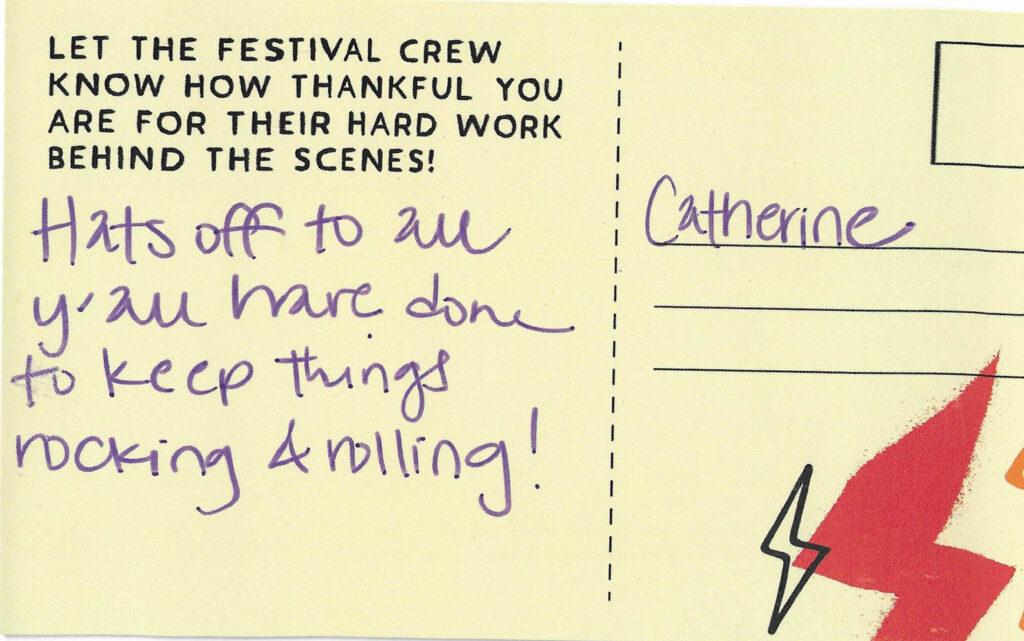 LET THE FESTIVAL CREW
KNOW HOW THANKFUL YOU
ARE FOR THEIR HARD WORK
BEHIND THE SCENES!
Hats off to all
y'all have done
to keep things
rocking & rolling!
Catherine